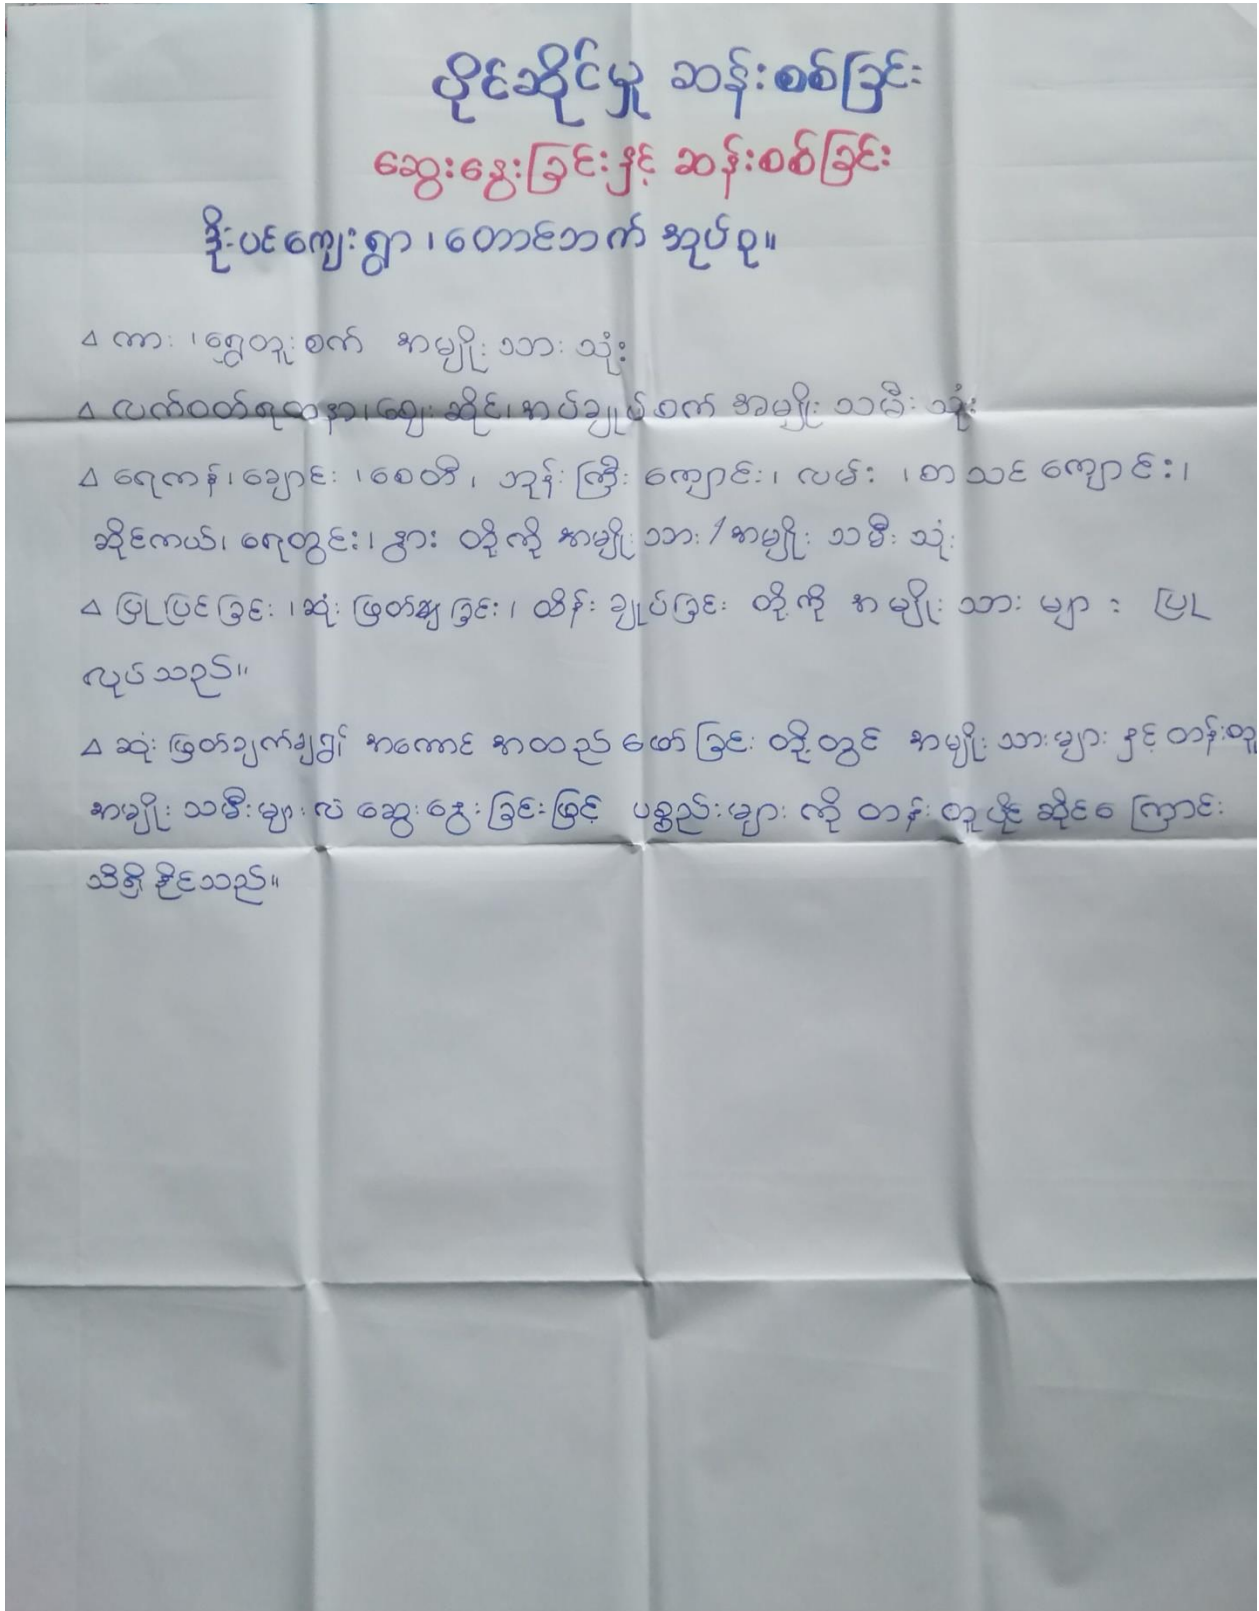 ပိုင်ဆိုင်မှု ဆန်းစစ်ခြင်း
ဆွေးနွေးခြင်းနှင့် ဆန်းစစ်ခြင်း
ဒိုးပင်ကျေးရွာ၊ တောင်ဘက် အုပ်စု။
△ ကား ၊ရွှေတူးစက် အမျိုးသား သုံး
△ လက်ဝတ်ရတနာ၊ ဈေးဆိုင်၊ အပ်ချုပ်စက် အမျိုးသမီး သုံး
△ ရေကန်၊ ချောင်း ၊စေတီ၊ ဘုန်းကြီး ကျောင်း၊ လမ်း ၊စာသင်ကျောင်း၊
ဆိုင်ကယ်၊ ရေတွင်း၊ နွား တို့ကို အမျိုးသား/အမျိုးသမီး သုံး
△ ပြုပြင်ခြင်း ၊ဆုံးဖြတ်ချခြင်း၊ ထိန်းချုပ်ခြင်း တို့ကို အမျိုးသား များ ပြု
လုပ်သည်။
△ ဆုံးဖြတ်ချက်ချ၍ အကောင်အထည်ဖော်ခြင်း တို့တွင် အမျိုးသားများ နှင့်တန်းတူ
အမျိုးသမီးများလဲ ဆွေးနွေးခြင်းဖြင့် ပစ္စည်းများ ကို တန်းတူပိုင်ဆိုင်ကြောင်း
သိရှိနိုင်သည်။